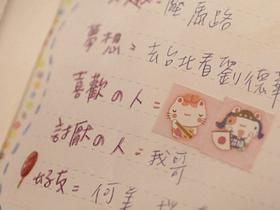 座馬路
夢想：去台北看劉德華
喜歡の人=
討厭の人=我哥
好友=何美